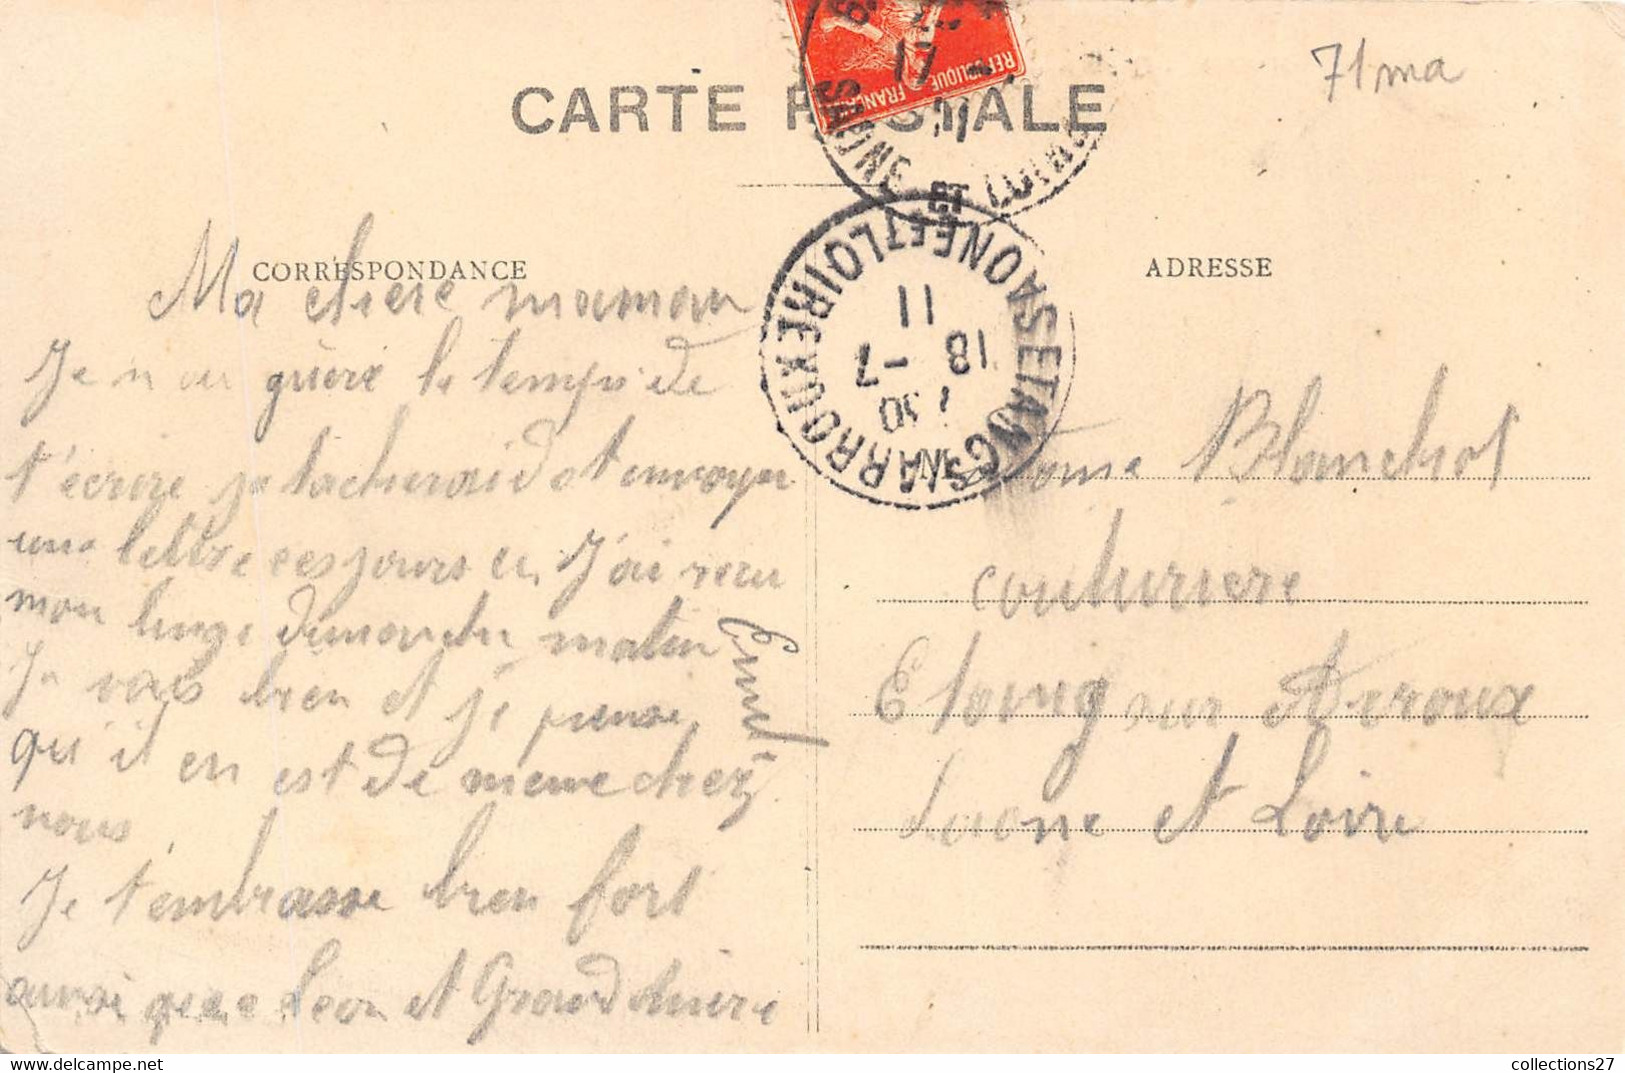 CARTE POSTALE
71 ma
REPUBLIQUE FRANÇAISE
SAONE ET LOIRE
17
11
CORRESPONDANCE
ADRESSE
ETANG S/ ARROUX SAONE ET LOIRE
30
18 -7
11
Ma chere maman
Je n'ai guère le temps de
t'écrire je tacherai de t'envoyer
une lettre ces jours ci, J'ai recu
mon linge dimanche matin
Je vais bien et je pense
qu'il en est de meme chez
nous.
Je t'embrasse bien fort
ainsi que Leon et Grand mère
Blanchot
couturiere
Etang sur Arroux
Saone et Loire
collections27